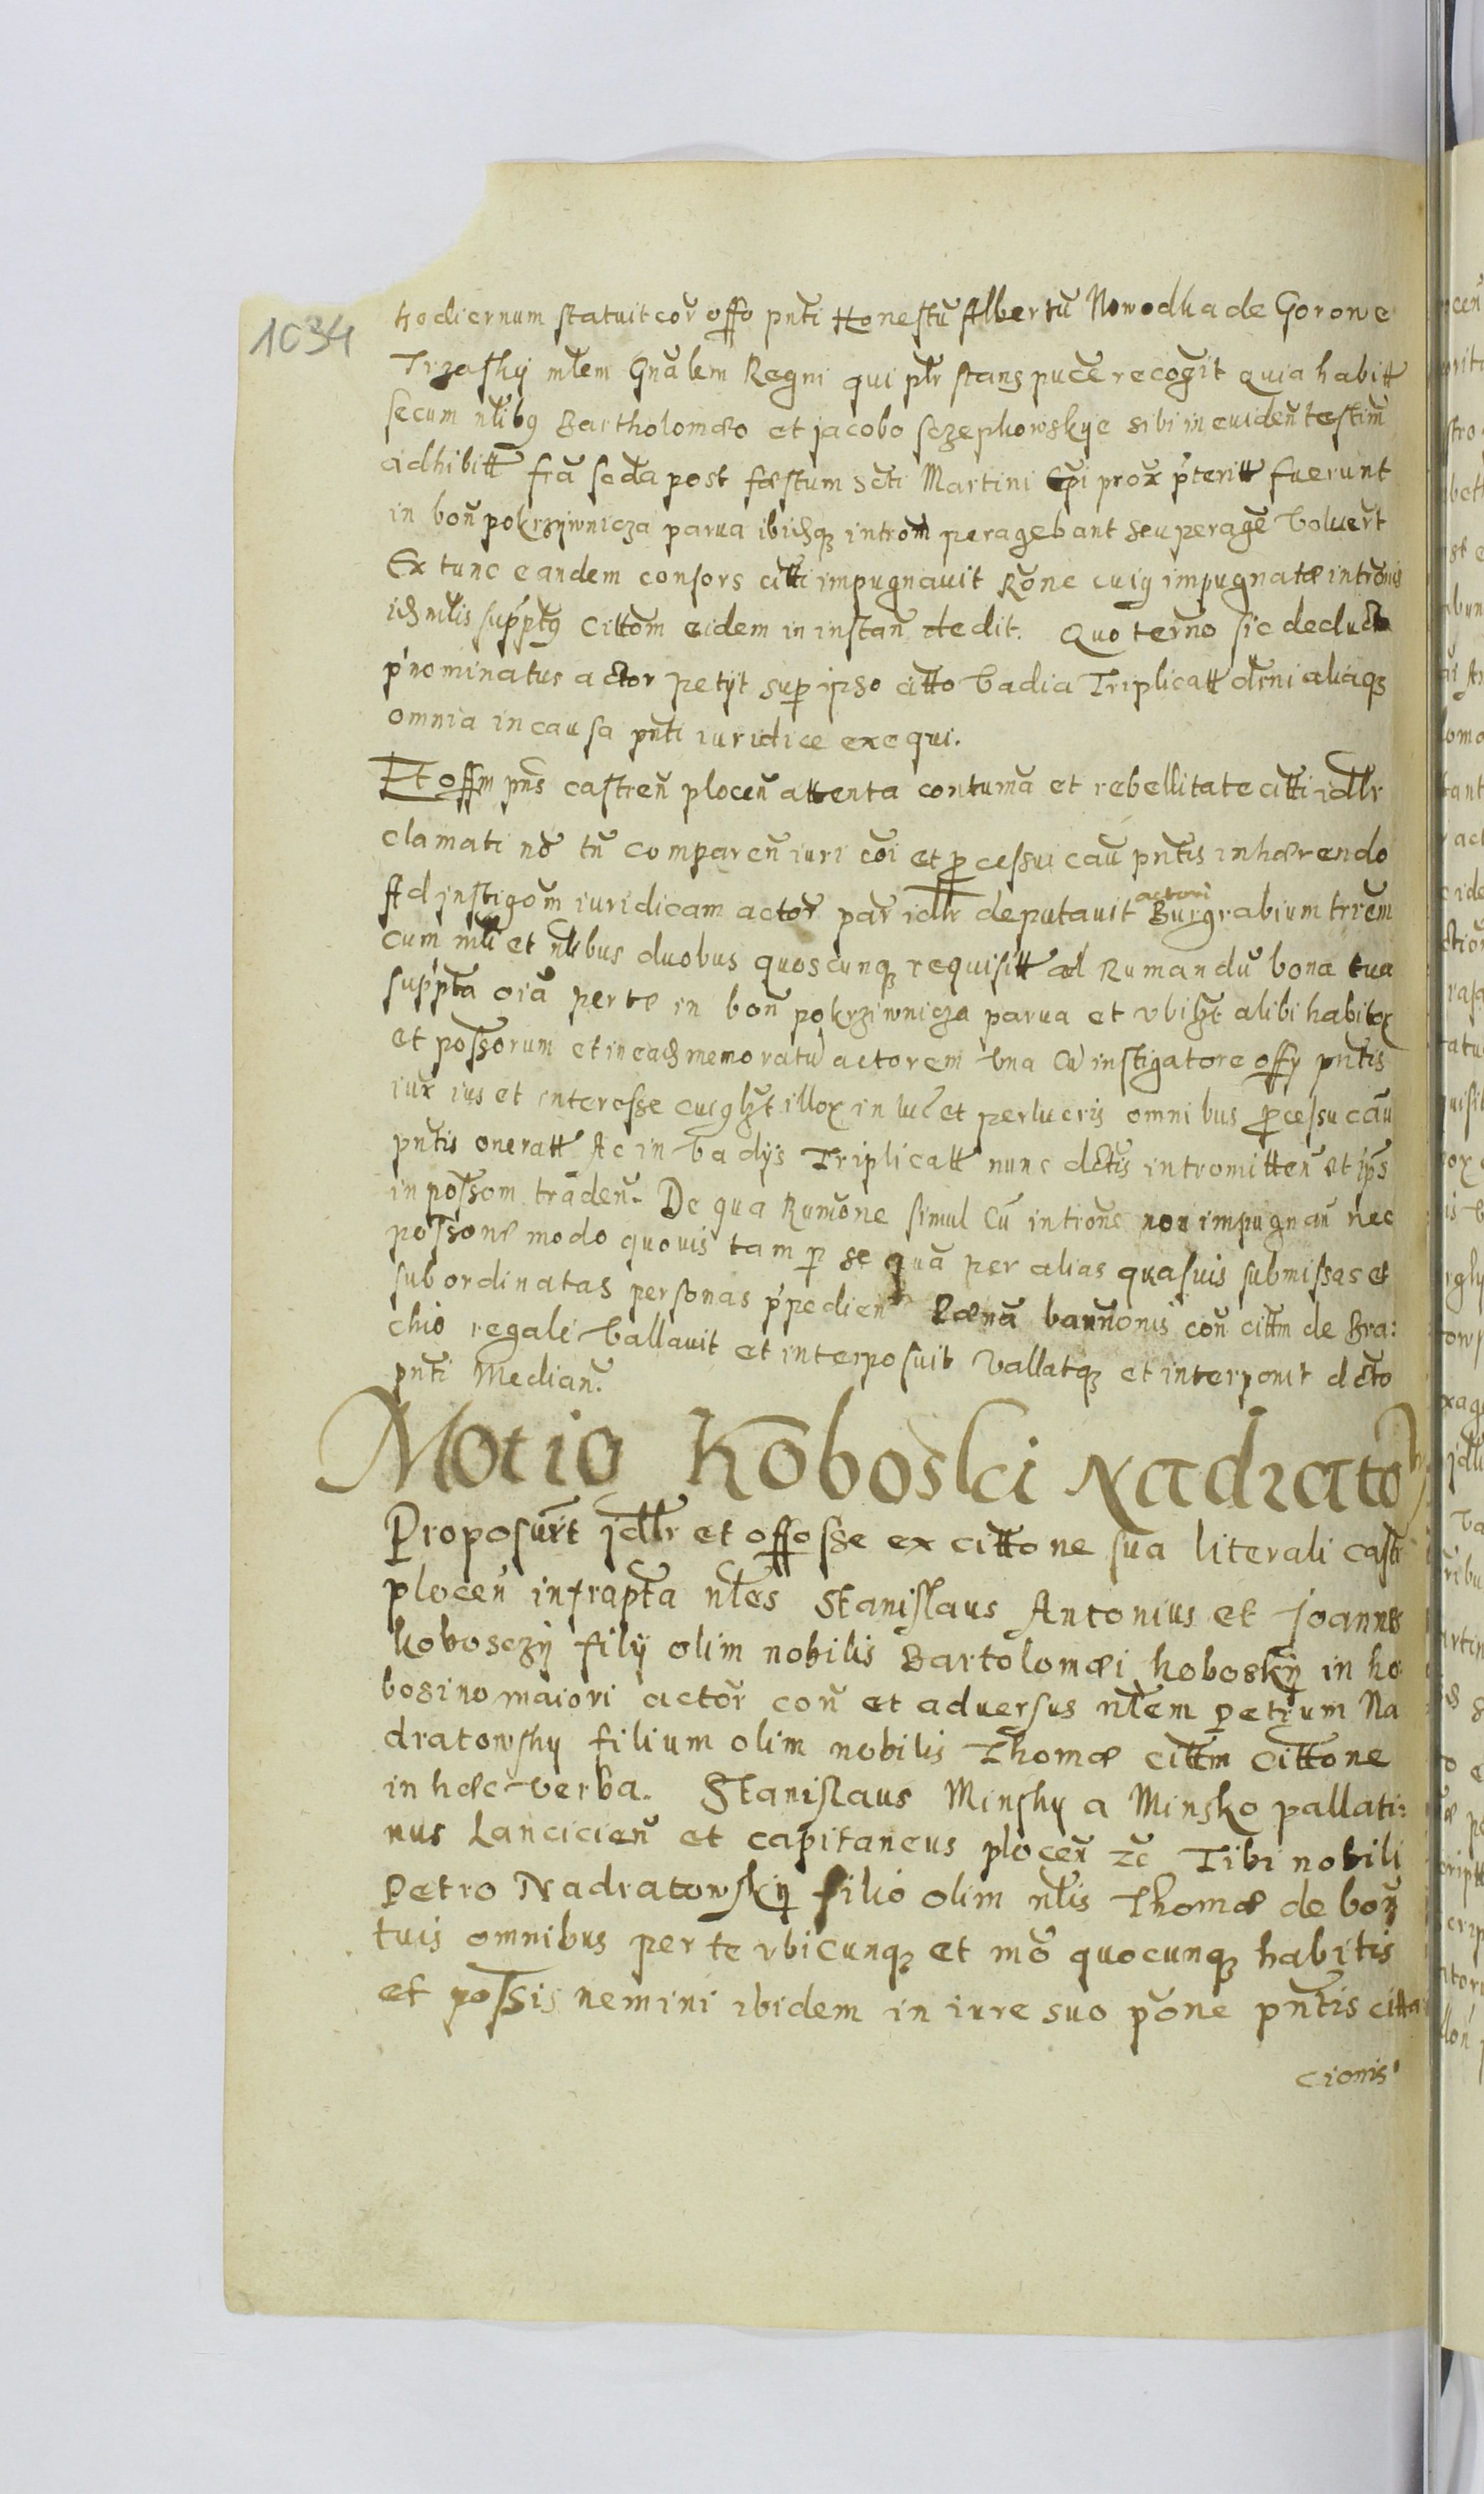 1034
hodiernum statuit cor̃ offo pñti Honestũ Albertũ Nowodka de Gorowe
Trzasky mlem Gñalem Regni qui plr stans pucẽ recogit quia habitt
secum nlibg Bartholomæo et jacobo Sczepkowskye sibi in euideñ testim̃
adhibitt frã scda post fæstum scti Martini Epi prox p̃teritt fuerunt
in boñ pokrzywnicza parua ibidzq intrõm peragebant seu peragẽ voluert
Ex tunc eandem consors citti impugnauit Rõne cuig impugnatæ intrõnis
idz mlis supptg cittõm eidem in instañ dedit. Quo ternõ sic deducto
p̃nominatus actor petyt sup ipso citto vadia Triplicatt dmni aliaqz
omnia in causa pñti iuridice exequi.
Et offm pñs castreñ ploceñ attenta contumã et rebellitate citti idlr
clamati nõ tñ compareñ iuri cõi et pcessui cau pñtis inhærendo
Ad instigõm iuridicam actor̃ par̃ idlr deputauit actori Burgrabium trrem
cum mli et nlibus duobus quoscunqz requisitt ad Rumandũ bona tua
suppta oĩa per te in boñ pokrziwnicza parua et vbilzt alibi habitox
et possorum et in eadz memoratũ actorem vna cũ instigatore offy pñtis
iux ius et interesse cuiglzt illox in luc̃ et perlucris omnibus pcessu cau
pñtis oneratt Ac in vadys Triplicatt nunc dctis intromitteñ et ips
in possom tradeñ. De qua Rumõne simul cũ intrõne non impugnañ nec
possone modo quouis tam p se quã per alias quasuis submissas et
subordinatas personas p̃pedieñ Pænã bannõnis coñ cittm de Bra:
chio regali vallauit et interposuit vallatqz et interponit dcto
pñti Mediañ.
Motio Koboski Nadrato
Proposuert jdlr et offosse ex cittone sua literali castr
ploceñ infrapta nles Stanislaus Antonius et Joannes
kobosczy filij olim nobilis Bartolomæi koboskij in ko
bosino maiori actor̃ coñ et aduersus nlem petrum Na
dratowsky filium olim nobilis Thomæ cittm cittone
in hæc verba. Stanislaus Minsky a Minsko pallati:
nus Lancicieñ et capitaneus ploceñ zc̃ Tibi nobili
Petro Nadratowskij filio olim nlis Thomæ de boñ
tuis omnibus per te vbicunqz et mõ quocunqz habitis
et possis nemini ibidem in iure suo põne pñtis citta
cionis